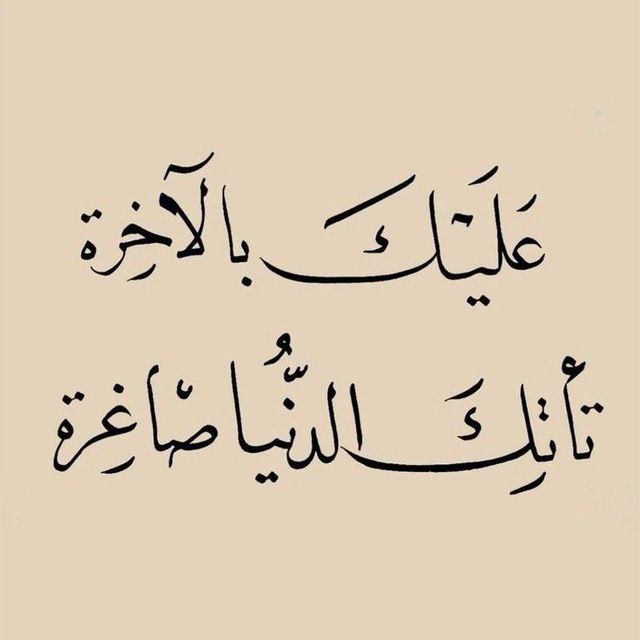 عَلَيْكَ بالآخِرة
تأتِكَ الدُّنْيا صاغِرة